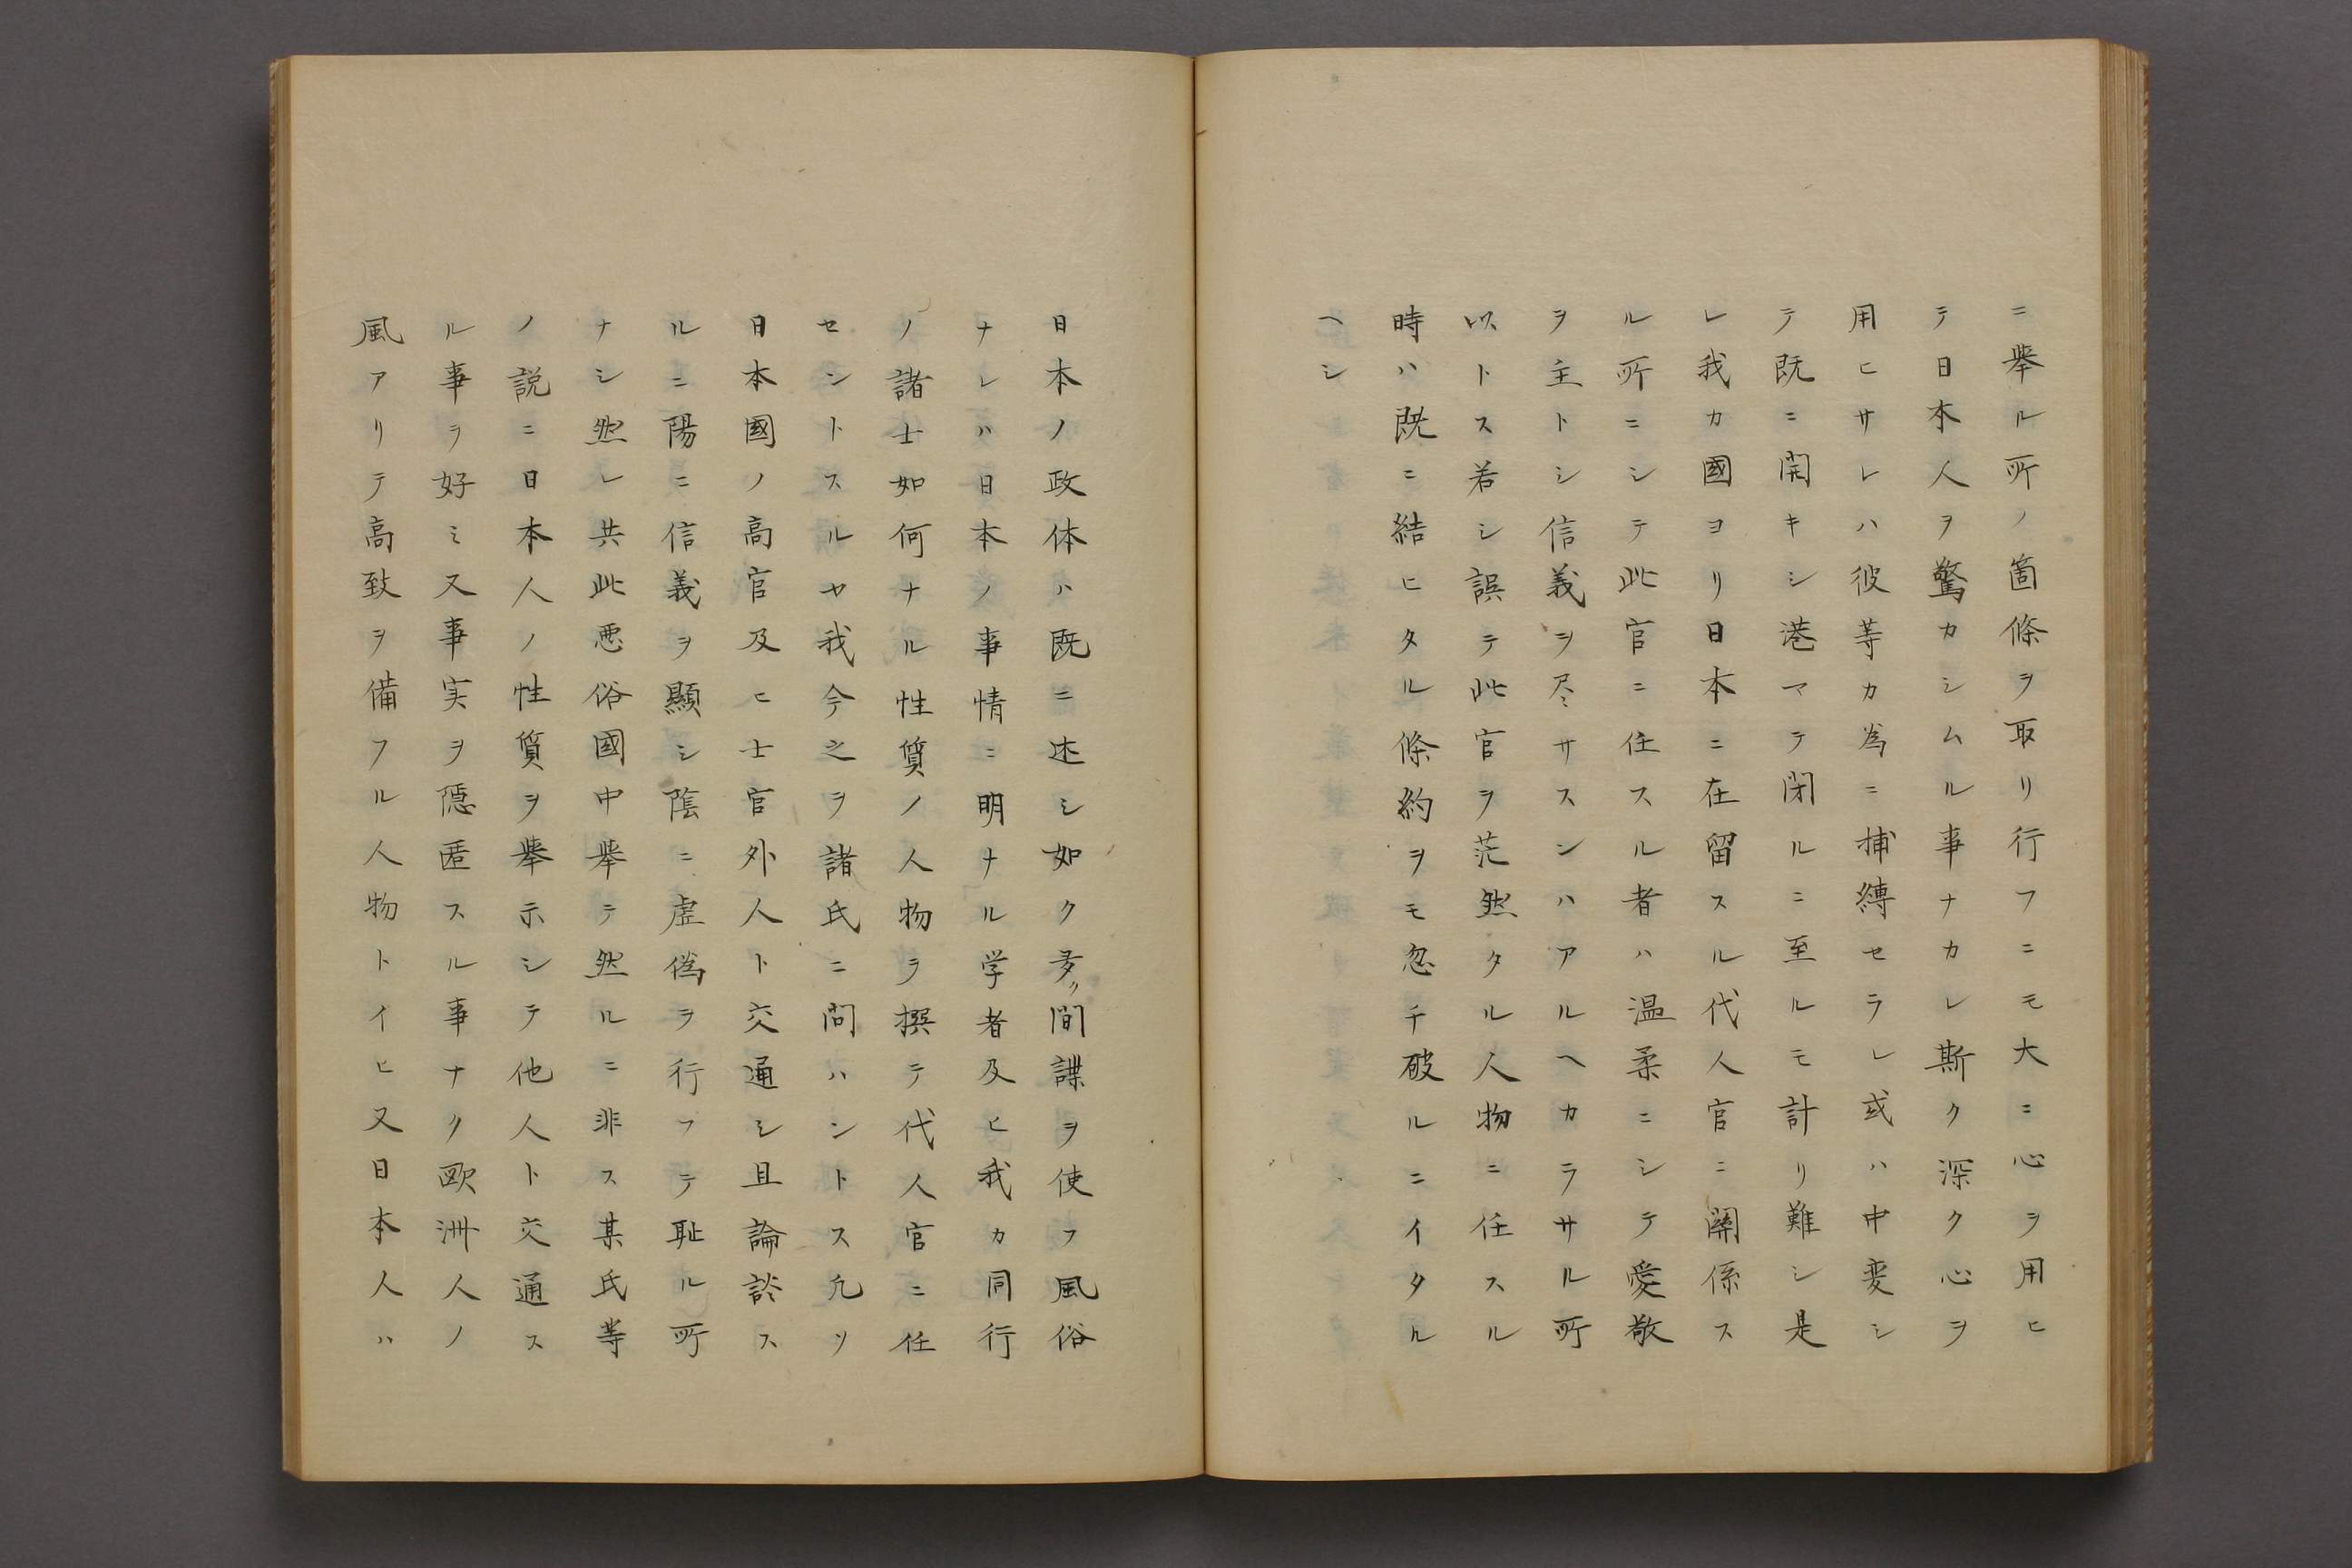 ニ擧ル所ノ箇條ヲ取リ行フニモ大ニ心ヲ用ヒ
テ日本人ヲ驚カシムル事ナカレ斯ク深ク心ヲ
用ヒサレハ彼等カ為ニ捕縛セラレ或ハ中変シ
テ既ニ開キシ港マテ閉ルニ至ルモ計リ難シ是
レ我カ國ヨリ日本ニ在留スル代人官ニ關係ス
ル所ニシテ此官ニ住スル者ハ温柔ニシテ愛敬
ヲ主トシ信義ヲ尽サスンハアルヘカラサル所
以トス若シ誤テ此官ヲ茫然タル人物ニ任スル
時ハ既ニ結ヒタル條約ヲモ忽チ破ルニイタル
ヘシ
日本ノ政体ハ既ニ述シ如ク多ク間諜ヲ使フ風俗
ナレハ日本ノ事情ニ明ナル学者及ヒ我カ同行
ノ諸士如何ナル性質ノ人物ヲ撰テ代人官ニ任
セントスルヤ我今之ヲ諸氏ニ問ハントス凡ソ
日本國ノ高官及ヒ士官外人ト交通シ且論談ス
ルニ陽ニ信義ヲ顯シ陰ニ虚偽ヲ行フテ耻ル所
ナシ然レ共此悪俗國中擧テ然ルニ非ス某氏等
ノ説ニ日本人ノ性質ヲ擧示シテ他人ト交通ス
ル事ヲ好ミ又事実ヲ隠匿スル事ナク欧洲人ノ
風アリテ高致ヲ備フル人物トイヒ又日本人ハ